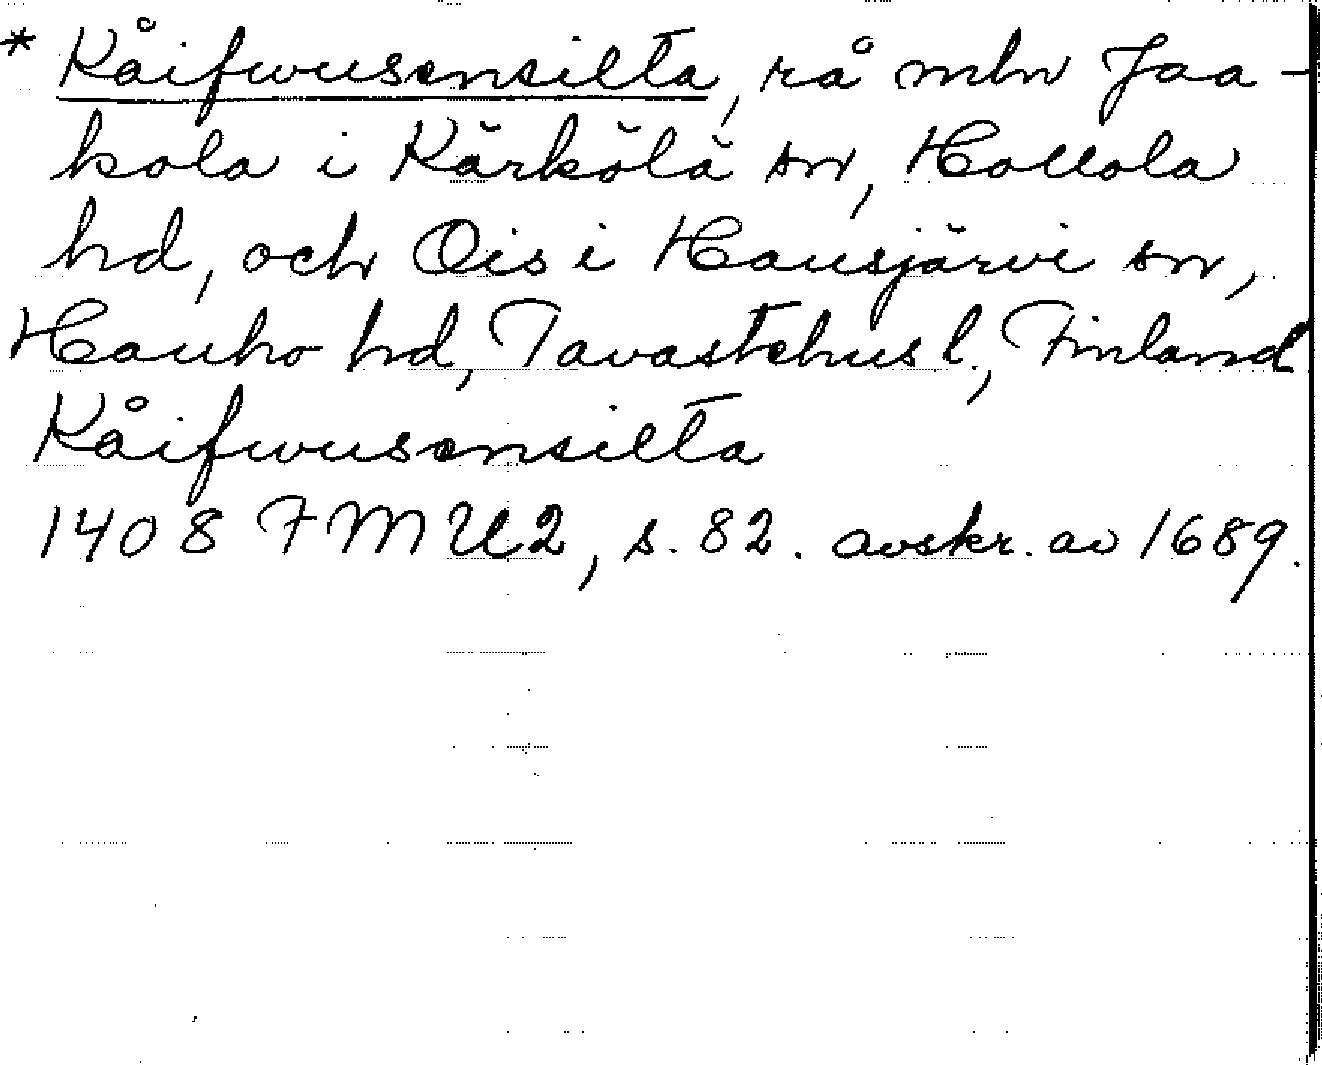 * Kåifwusensilta, rå mln Jaa-
kola i Kärkölä sn, Hollola
hd, och Ois i Hausjärvi sn,
Hauho hd, Tavastehus l., Finland
Kåifwusensilta
1408 FMU2, s. 82. avskr. av 1689.